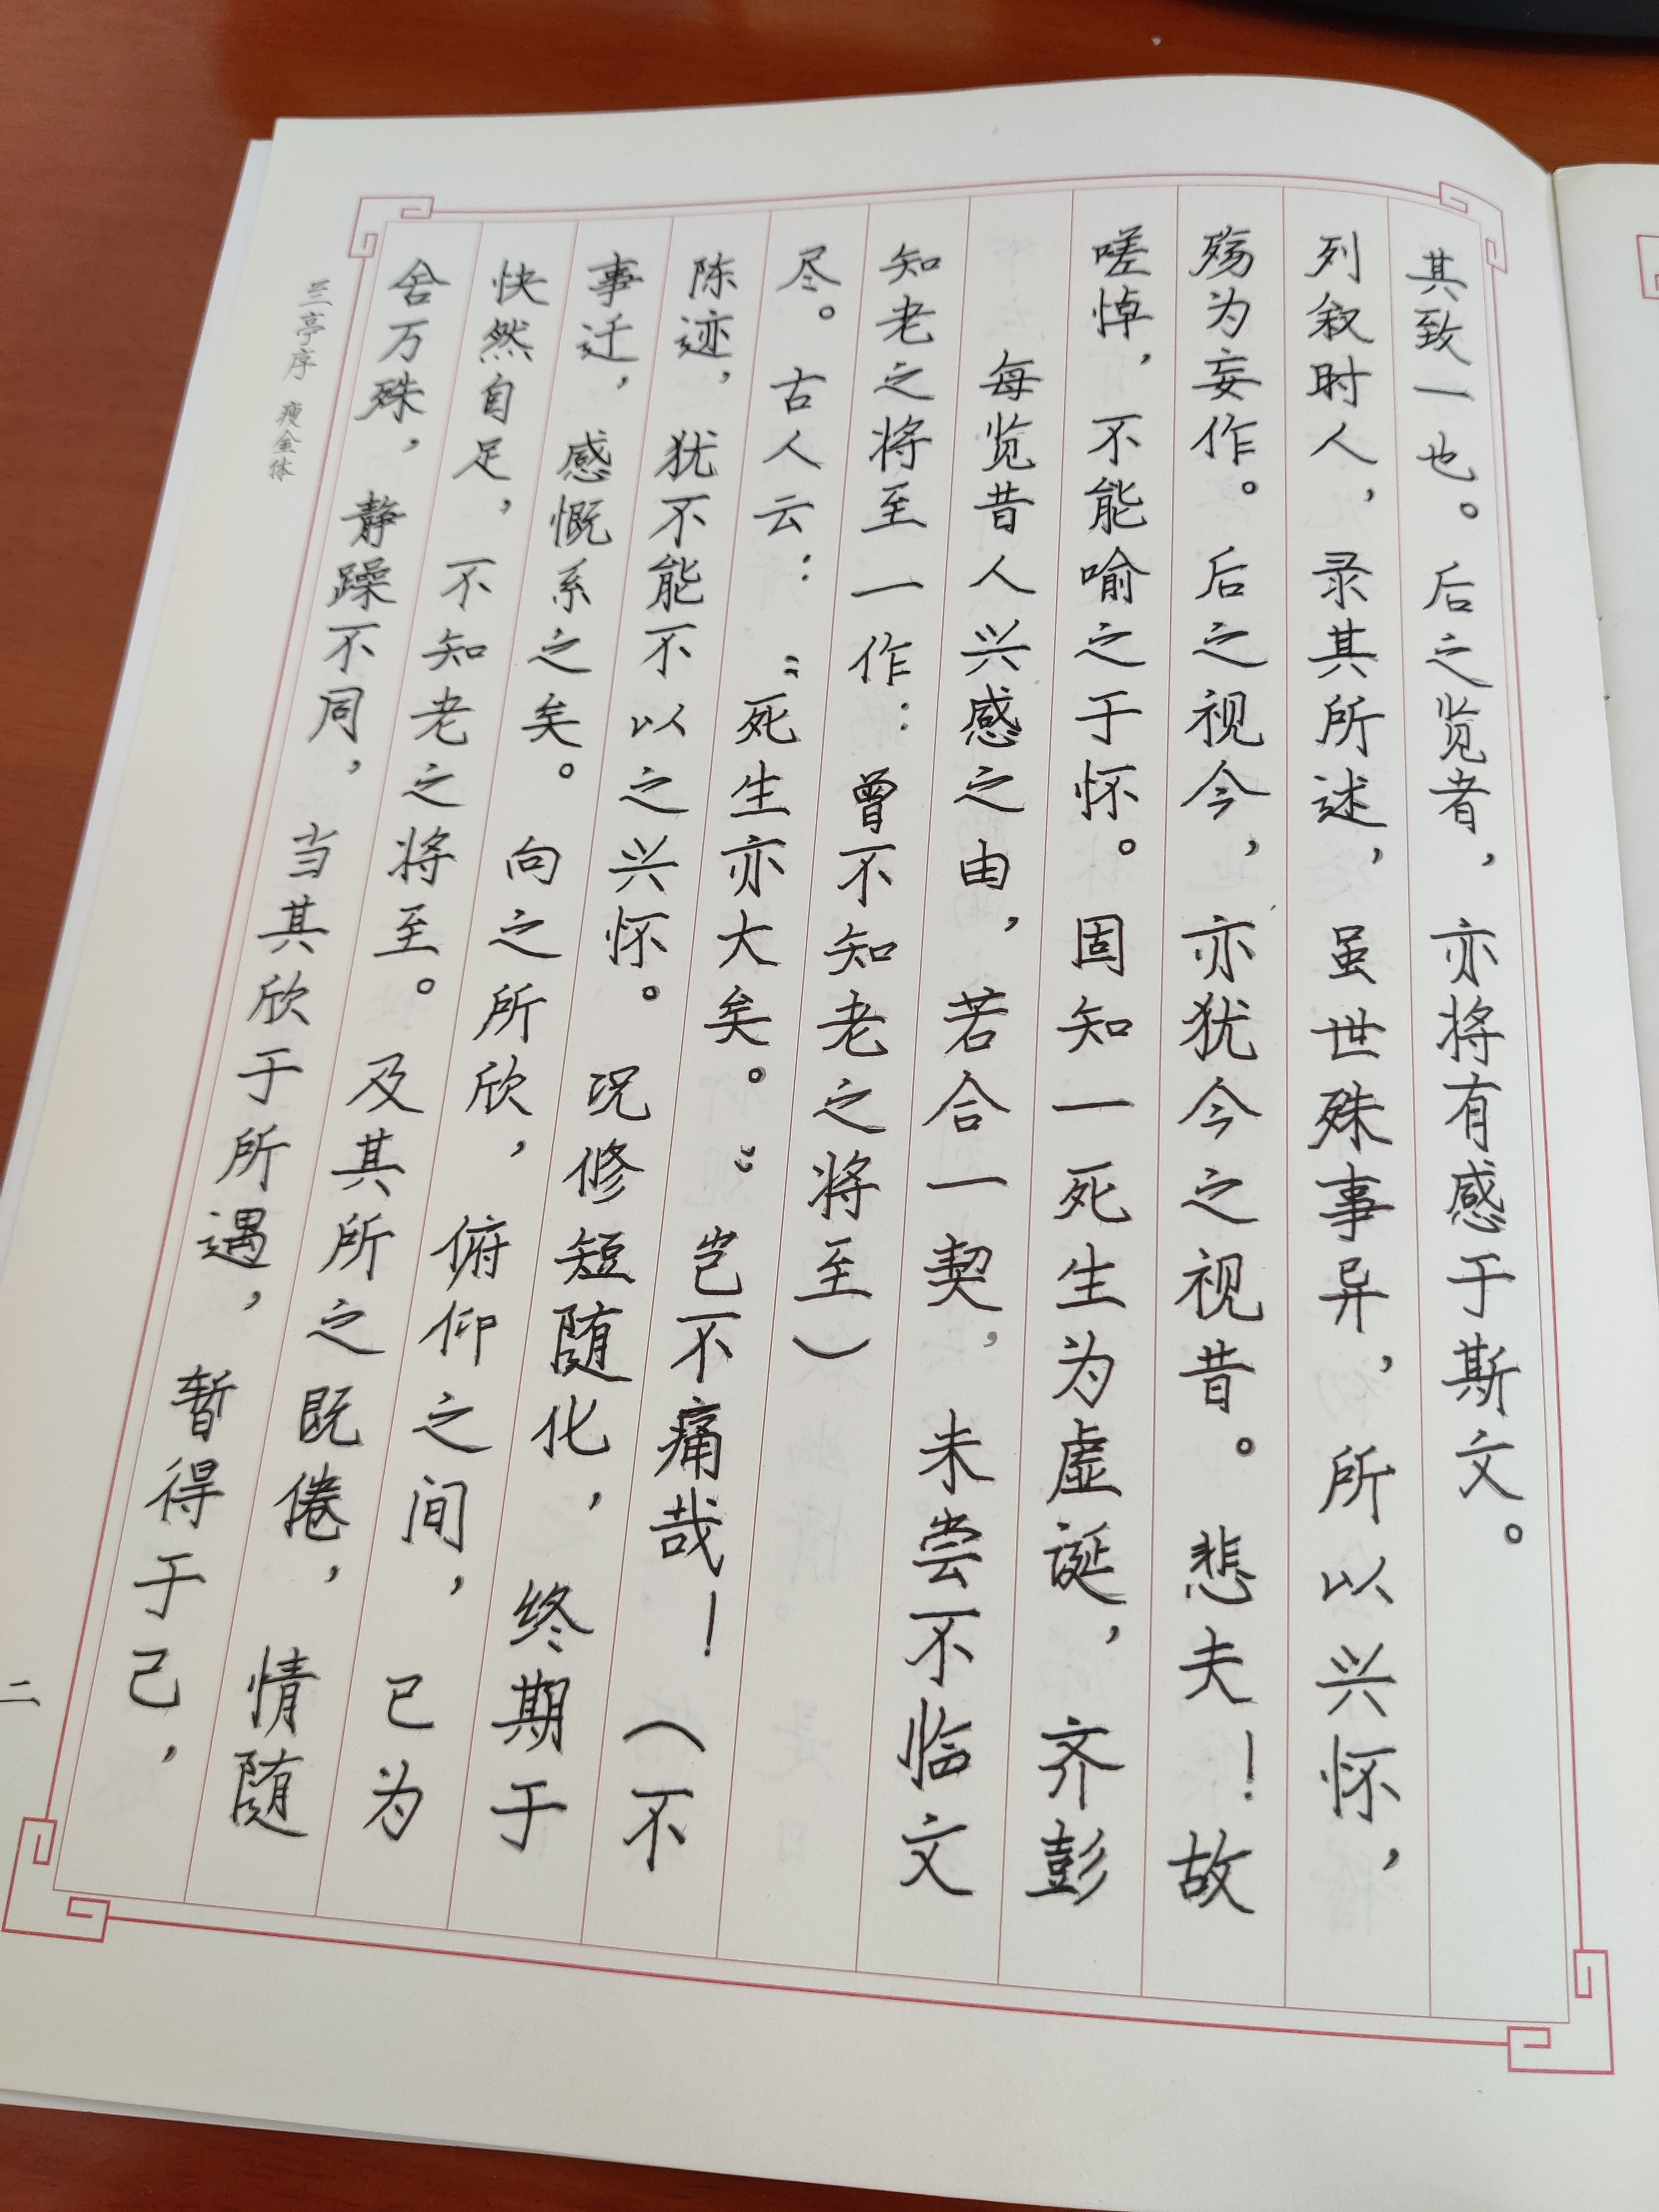 兰亭序 瘦金体
舍万殊，静躁不同，当其欣于所遇，暂得于己，
快然自足，不知老之将至。及其所之既倦，情随
事迁，感慨系之矣。向之所欣，俯仰之间，已为
陈迹，犹不能不以之兴怀。况修短随化，终期于
尽。古人云：“死生亦大矣。”岂不痛哉！（不
知老之将至一作：曾不知老之将至）
每览昔人兴感之由，若合一契，未尝不临文
嗟悼，不能喻之于怀。固知一死生为虚诞，齐彭
殇为妄作。后之视今，亦犹今之视昔。悲夫！故
列叙时人，录其所述，虽世殊事异，所以兴怀，
其致一也。后之览者，亦将有感于斯文。
二